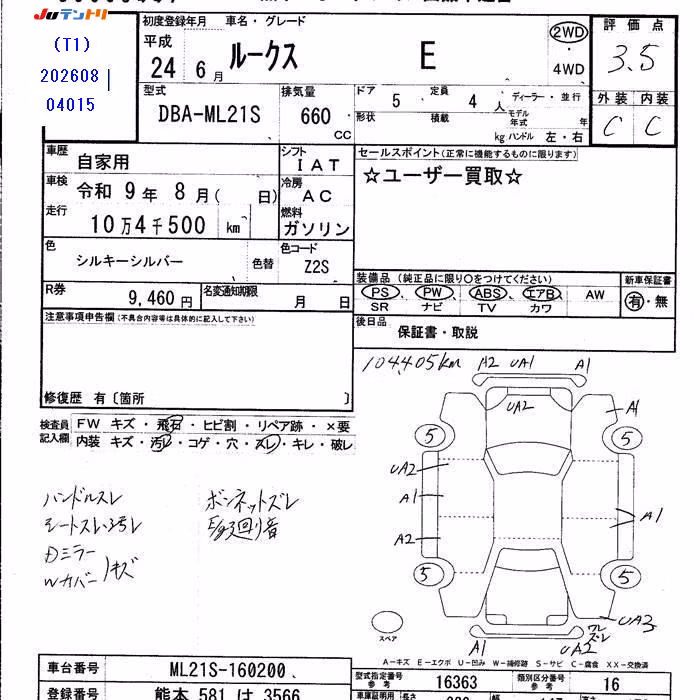 Juテントリ
(T1)
202608
04015
初度登録年月
車名・グレード
平成
24 6月
ルークス E
2WD
・
4WD
評価点
3.5
外装 内装
C C
型式
DBA-ML21S
排気量
660
CC
ドア 5 定員 4人
ディーラー・並行
形状 積載 kg
モデル年式 年
ハンドル 左・右
車歴
自家用
シフト
IAT
セールスポイント(正常に機能するものに限ります)
☆ユーザー買取☆
車検
令和 9年 8月( 日)
冷房
AC
走行
10万4千500 km
燃料
ガソリン
色
シルキーシルバー
色替
色コード
Z2S
装備品 (純正品に限り○をつけてください)
PS、PW、ABS、エアB、AW
SR ナビ TV カワ
新車保証書
有・無
R券
9,460円
名変通知期限
月 日
後日品
保証書・取説
注意事項申告欄(不具合内容等は具体的に記入して下さい)
修復歴 有〔箇所 〕
検査員記入欄
FW キズ・飛石・ヒビ割・リペア跡・×要
内装 キズ・汚レ・コゲ・穴・スレ・キレ・破レ
104,405km
A2 UA1 A1
UA2
A1
5 5
UA2
A1
A1
A2
5 5
UA3
スペア
A1
UA2
ワレ
ズレ
ハンドルスレ
シートスレ・ヨゴレ
Dミラー
Wカバー キズ
ボンネットズレ
E/g廻り音
A-キズ E-エクボ U-凹み W-補修跡 S-サビ C-腐食 XX-交換済
車台番号
ML21S-160200
登録番号
熊本 581 は 3566
型式指定番号
参考
16363
類別区分番号
参考
16